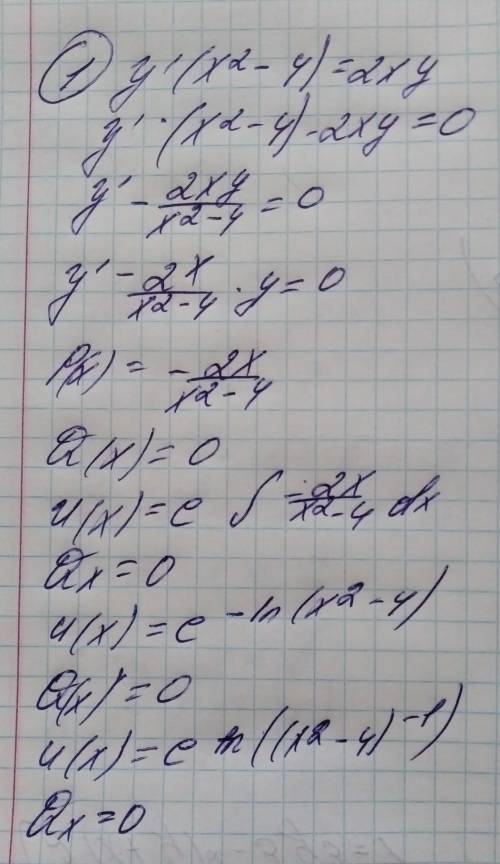 ① y' (x² - 4) = 2xy
y' · (x² - 4) - 2xy = 0
y' - 2xy/(x² - 4) = 0
y' - 2x/(x² - 4) · y = 0
P(x) = - 2x/(x² - 4)
Q(x) = 0
u(x) = e ∫ - 2x/(x² - 4) dx
Qx = 0
u(x) = e - ln (x² - 4)
Q(x) = 0
u(x) = e ln ((x² - 4)⁻¹)
Qx = 0